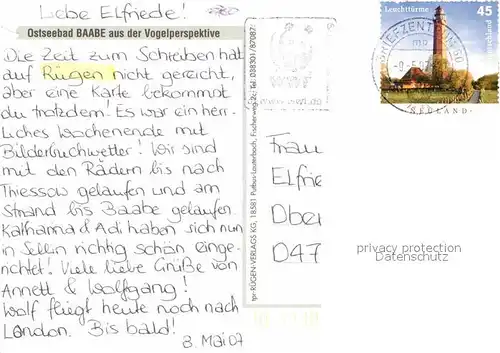 Liebe Elfriede!
Ostseebad BAABE aus der Vogelperspektive
Die Zeit zum Schreiben hat
auf Rügen nicht gereicht,
aber eine Karte bekommst
du trotzdem! Es war ein herr-
liches Wochenende mit
Bilderbuchwetter! Wir sind
mit den Rädern bis nach
Thiessow gelaufen und am
Strand bis Baabe gelaufen.
Katharina & Adi haben sich nun
in Sellin richtig schön einge-
richtet! Viele liebe Grüße von
Annett & Wolfgang!
Wolf fliegt heute noch nach
London. Bis bald!
8. Mai 07
tpr-RÜGEN-VERLAGS KG, 18581 Putbus-Lauterbach, Fischerweg 2c; Tel. 038301/87087
WWF
Leuchttürme
45
BRIEFZENTRUM
Frau
Elfrie
Ober
047
privacy protection
Datenschutz